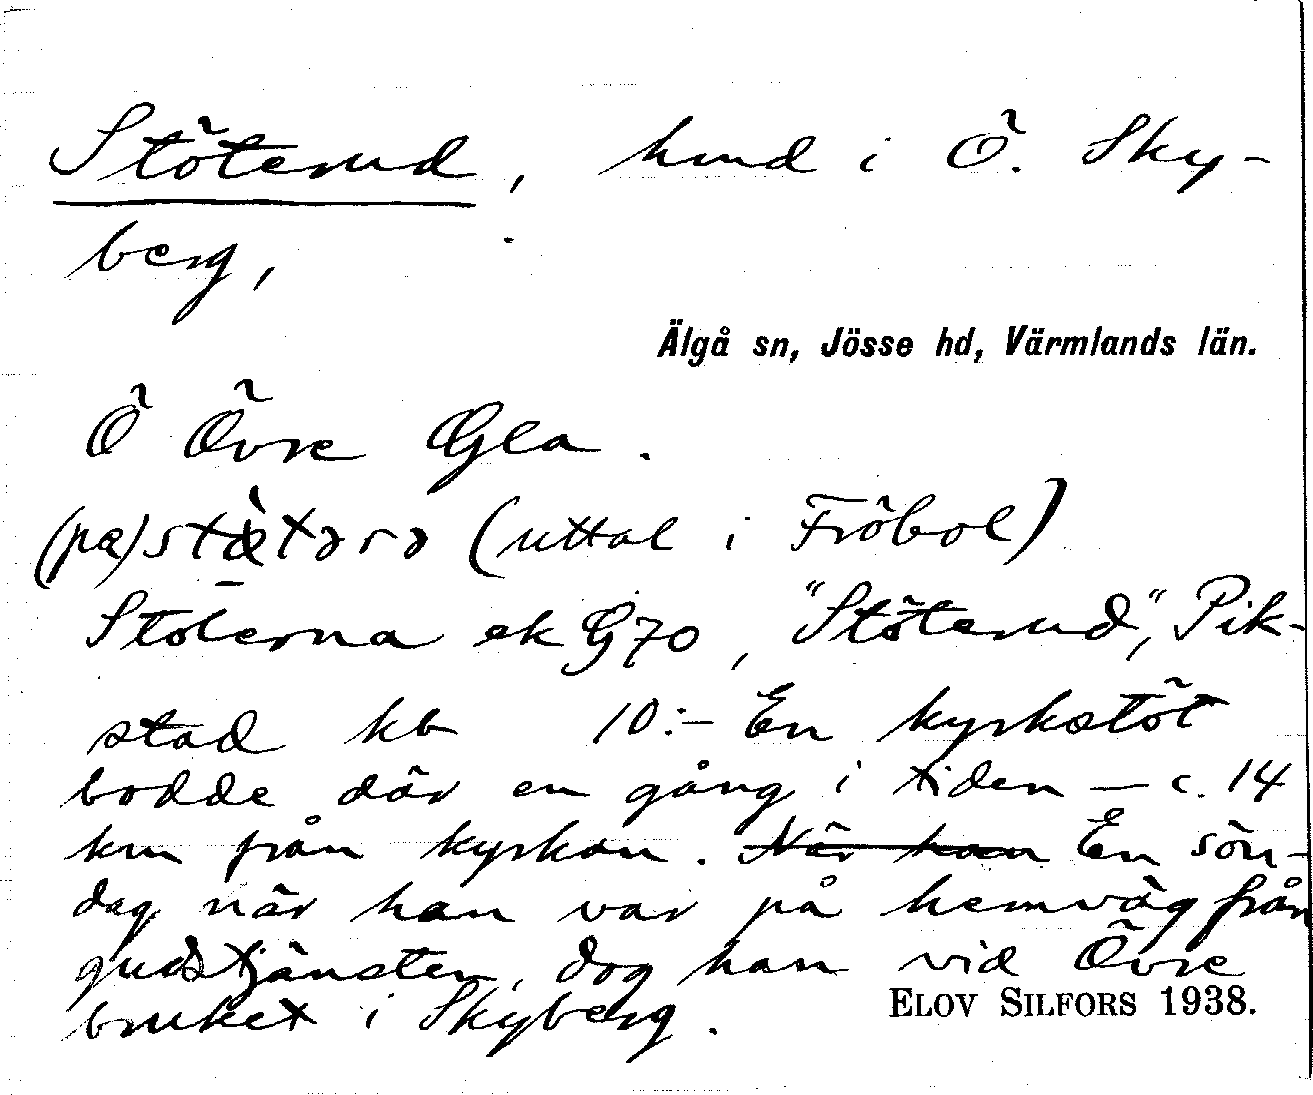 Stöterud, hmd i Ö. Sky-
berg,
Älgå sn, Jösse hd, Värmlands län.
Ö Övre Gla.
(pa) (uttal i Fröbol)
Stöterna ek G70, "Stöterud", Pik-
stad kb 10:- En kyrkstöt
bodde där en gång i tiden — c. 14
km från kyrkan. När han En sön-
dag när han var på hemväg från
gudstjänsten, dog han vid Övre
bruket i Skyberg.
ELOV SILFORS 1938.